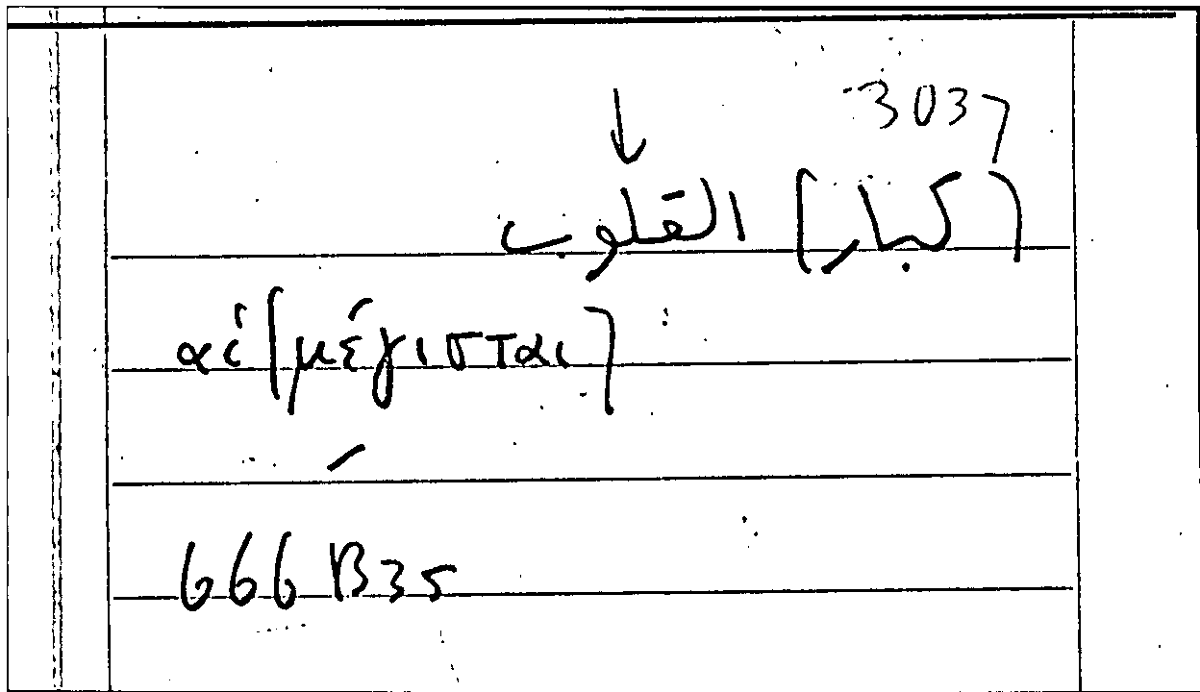 3037
↓
[كبار] القلوب
αἱ [μέγισται]
666 B35